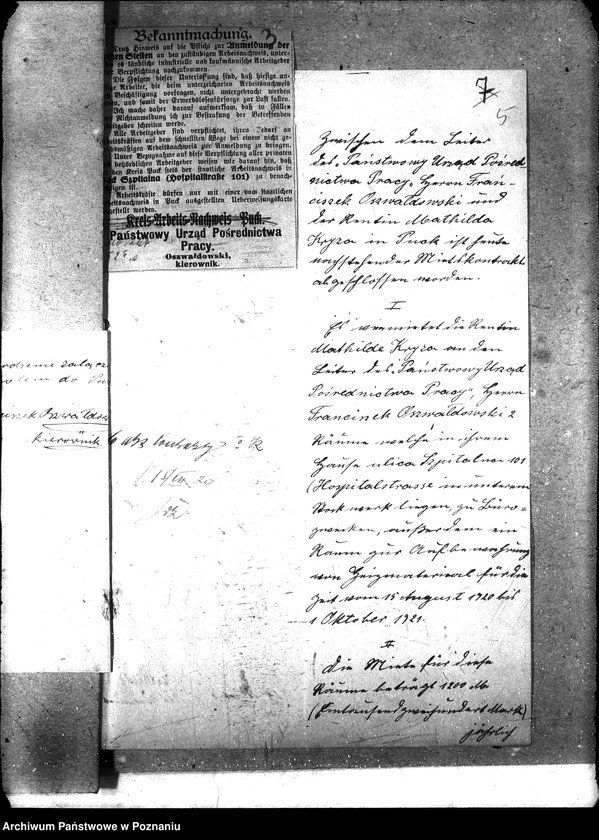 Bekanntmachung.
3
Trotz Hinweis auf die Pflicht zur Anmeldung der
Stellen an den zuständigen Arbeitsnachweis, unter-
es ländliche industrielle und kaufmännische Arbeitgeber
Verpflichtung nachzukommen.
Die Folgen dieser Unterlassung sind, daß hiesige
Arbeiter, die beim unterzeichneten Arbeitsnachweis
Beschäftigung vortragen, nicht untergebracht werden
und somit der Erwerbslosenfürsorge zur Last fallen.
Ich mache daher darauf aufmerksam, daß in Fällen
Nichtanmeldung ich zur Bestrafung der Betreffenden
schreiten werde.
Alle Arbeitgeber sind verpflichtet, ihren Bedarf an
auf dem schnellsten Wege bei einem
Arbeitsnachweis zur Anmeldung zu bringen.
Unter Bezugnahme auf diese Verpflichtung aller privaten
behördlichen Arbeitgeber weisen wir darauf hin, daß
den Kreis Puck stets der staatliche Arbeitsnachweis in
Szpitalna (Hospitalstraße 101) zu
ist.
Arbeitskräfte dürfen nur mit einer vom staatlichen
Arbeitsnachweis in Puck ausgestellten Ueberweisungskarte
werden.
Kreis-Arbeits-Nachweis Puck.
Państwowy Urząd Pośrednictwa
Pracy.
Oszwałdowski,
kierownik.
7
5
Zwischen dem Leiter
des "Państwowy Urząd Pośred
nictwa Pracy", Herrn Fran-
ciszek Oszwałdowski und
der Rentin Mathilda
Kryza in Puck ist heute
nachstehender Mietskontrakt
abgeschlossen worden.
I
Es vermietet die Rentin
Mathilde Kryza an den
Leiter des "Państwowy Urząd
Pośrednictwa Pracy", Herrn
Franciszek Oszwałdowski 2
Räume welche in ihrem
Hause ulica Szpitalna 101
(Hospitalstrasse im unterem
Stockwerk liegen, zu Büro-
zwecken, außerdem ein
Raum zur Aufbewahrung
von Heizmaterial für die
Zeit vom 15 August 1920 bis
1 Oktober 1921.
II
Die Miete für diese
Räume beträgt 1200 M
(Eintausendzweihundert Mark)
jährlich
Oszwałdows
kierownik
Archiwum Państwowe w Poznaniu